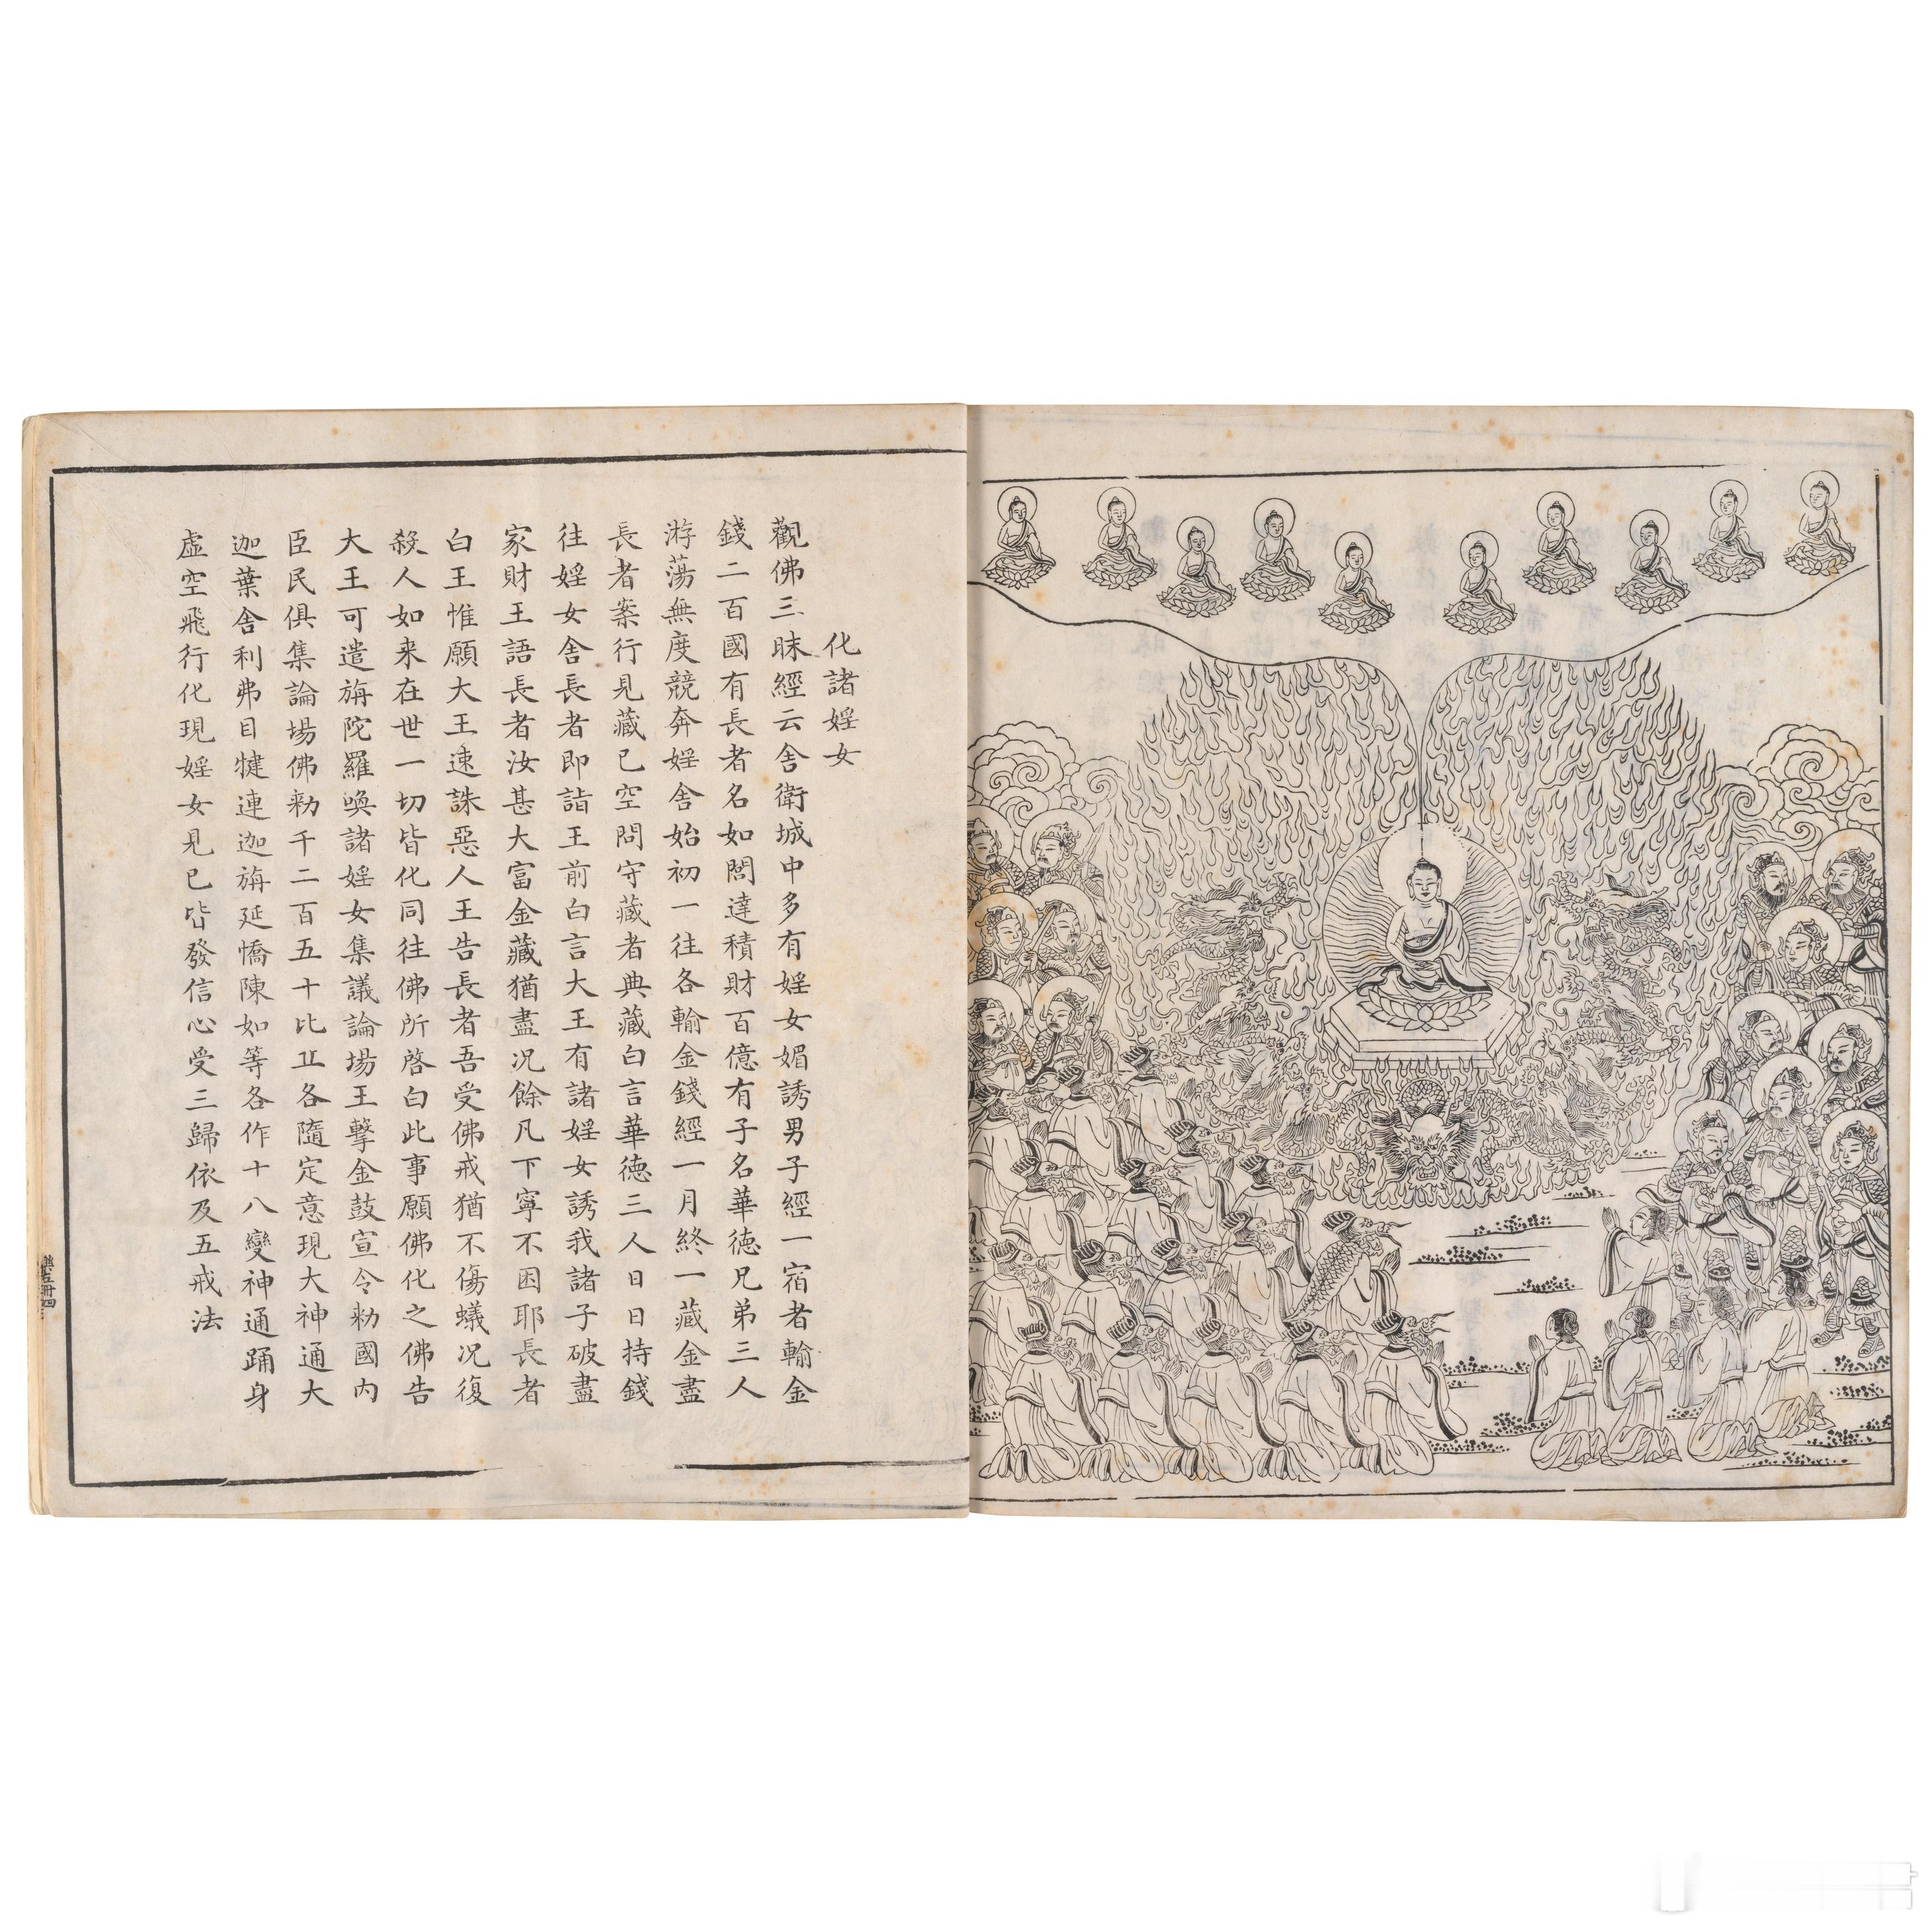 化諸婬女
觀佛三昧經云舍衛城中多有婬女媚誘男子經一宿者輸金
錢二百國有長者名如閭達積財百億有子名華德兄弟三人
游蕩無度競奔婬舍始初一往各輸金錢經一月終一藏金盡
長者案行見藏已空問守藏者典藏白言華德三人日日持錢
往婬女舍長者即詣王前白言大王有諸婬女誘我諸子破盡
家財王語長者汝甚大富金藏猶盡况餘凡下寧不困耶長者
白王惟願大王速誅惡人王告長者吾受佛戒猶不傷蟻况復
殺人如来在世一切皆化同往佛所啓白此事願佛化之佛告
大王可遣旃陀羅喚諸婬女集議論場王擊金鼓宣令勑國内
臣民俱集論場佛勑千二百五十比丘各隨定意現大神通大
迦葉舍利弗目犍連迦旃延憍陳如等各作十八變神通踊身
虛空飛行化現婬女見已皆發信心受三歸依及五戒法